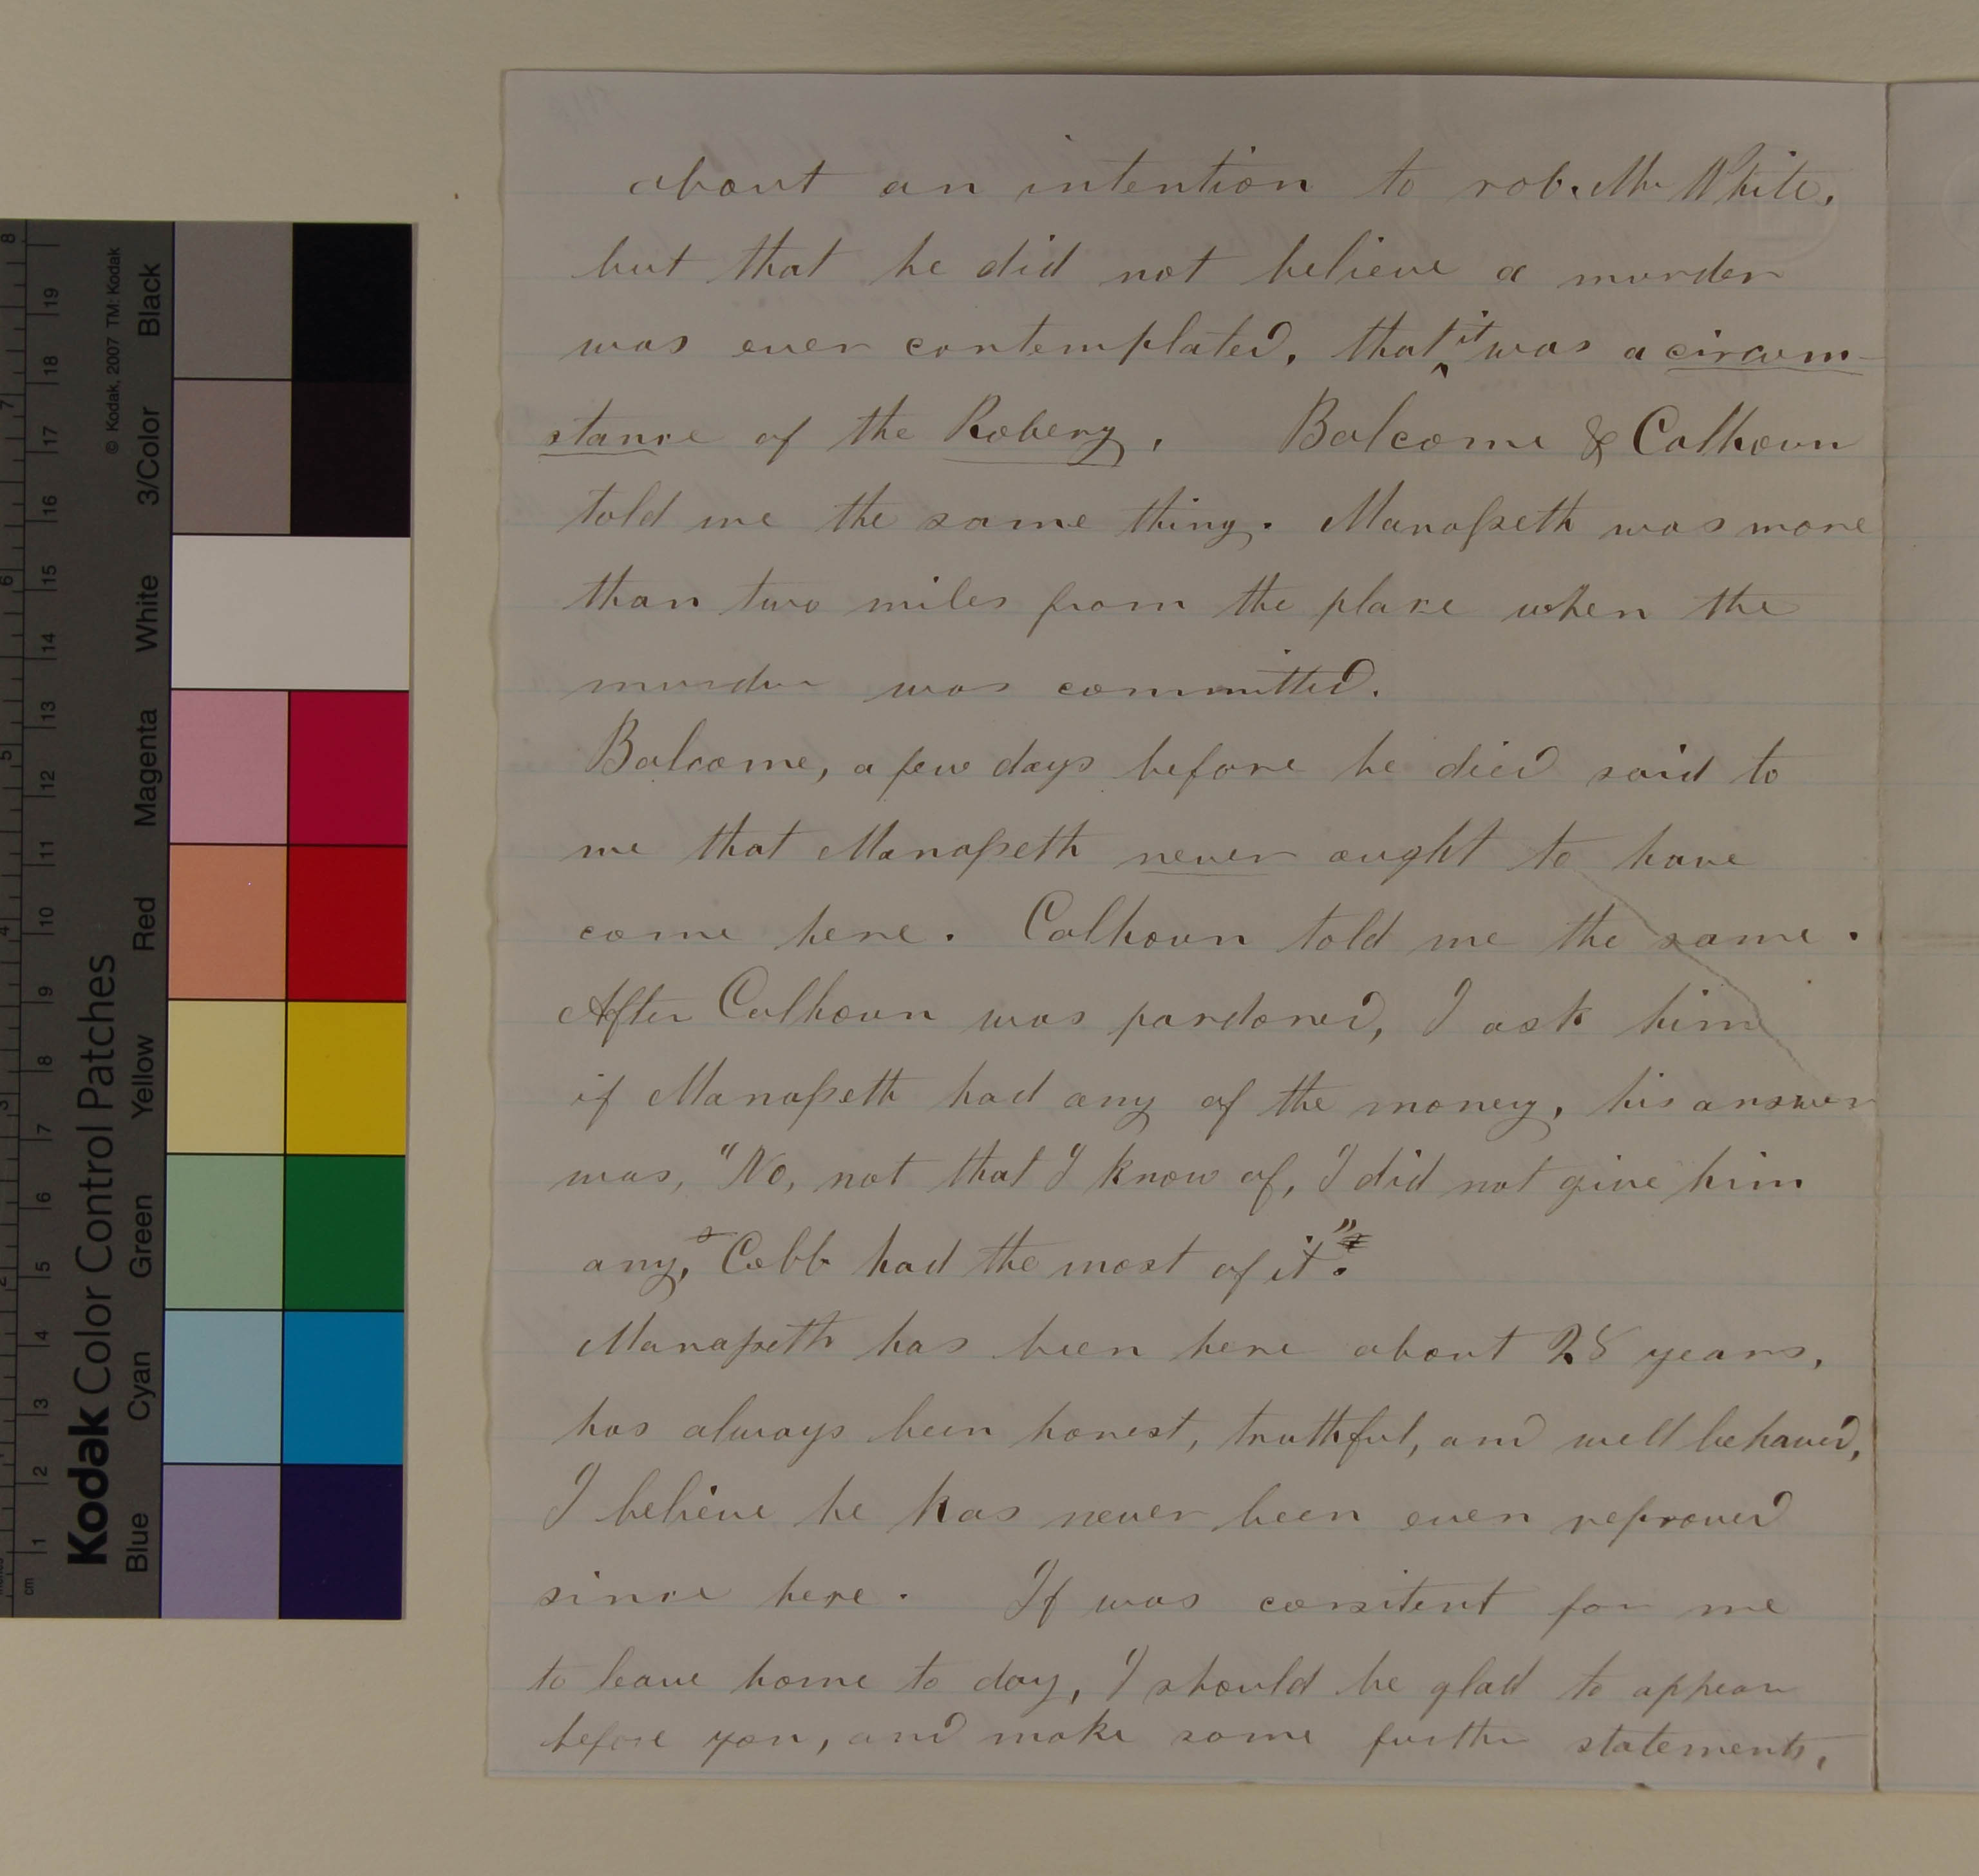 about an intention to rob. Mr White,
but that he did not believe a murder
was ever contemplated, that ^it was a circum-
stance of the Robery, Balcome & Calhoun
told me the same thing. Manaſseth was more
than two miles from the place when the
murder was committed.
Balcome, a few days before he died said to
me that Manaſseth never ought to have
come here. Calhoun told me the same.
After Calhoun was pardoned, I ask him
if Manaſseth had any of the money, his answer
was, "No, not that I know of, I did not give him
any, Cobb had the most of it."
Manaſseth has been here about 28 years,
has always been honest, truthful, and well behaved,
I believe he has never been even reproved
since here. If was consitent for me
to leave home to day, I should be glad to appear
before you, and make some further statements,
Kodak Color Control Patches
© Kodak, 2007 TM: Kodak
Blue Cyan Green Yellow Red Magenta White 3/Color Black
cm 1 2 3 4 5 6 7 8 9 10 11 12 13 14 15 16 17 18 19
2 3 4 5 6 7 8